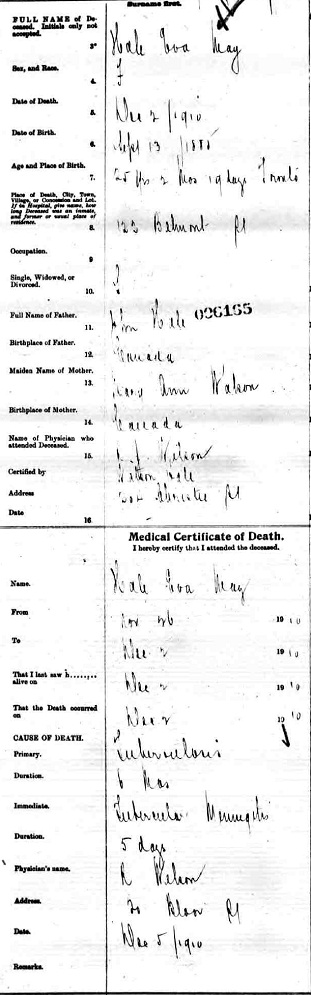 Surname first.
FULL NAME of De-
ceased. Initials only not
accepted.
3* Hale Eva May
Sex, and Race.
4. F
Date of Death.
5. Dec 2 / 1910
Date of Birth.
6. Sept 13 / 1885
Age and Place of Birth.
7. 25 yrs 2 Mos 19 days Toronto
Place of Death, City, Town,
Village, or Concession and Lot.
If in Hospital, give name, how
long Deceased was an inmate,
and former or usual place of
residence.
8. 123 Belmont St
Occupation.
9
Single, Widowed, or
Divorced.
10.
Full Name of Father.
11. John Hale 026165
Birthplace of Father.
12. Canada
Maiden Name of Mother.
13. Mary Ann Watson
Birthplace of Mother.
14. Canada
Name of Physician who
attended Deceased.
15. Wilson
Certified by
Address
St
Date
16
Medical Certificate of Death.
I hereby certify that I attended the deceased.
Name. Hale Eva May
From Nov 26 1910
To Dec 2 1910
That I last saw h........
alive on Dec 2 1910
That the Death occurred
on Dec 2 1910
CAUSE OF DEATH.
Primary. Tuberculosis
Duration. 6 Mos
Immediate. Tubercular Meningitis
Duration. 5 days
Physician's name. R Wilson
Address. Bloor St
Date. Dec 5 / 1910
Remarks.